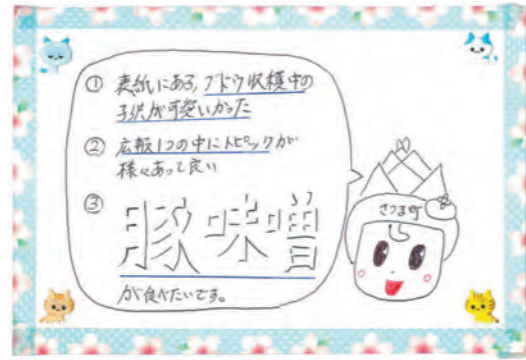 ① 表紙にある、ブドウ収穫中の
子供が可愛いかった
② 広報1つの中にトピックが
様々あって良い
③
豚味噌
が食べたいです。
さつま町